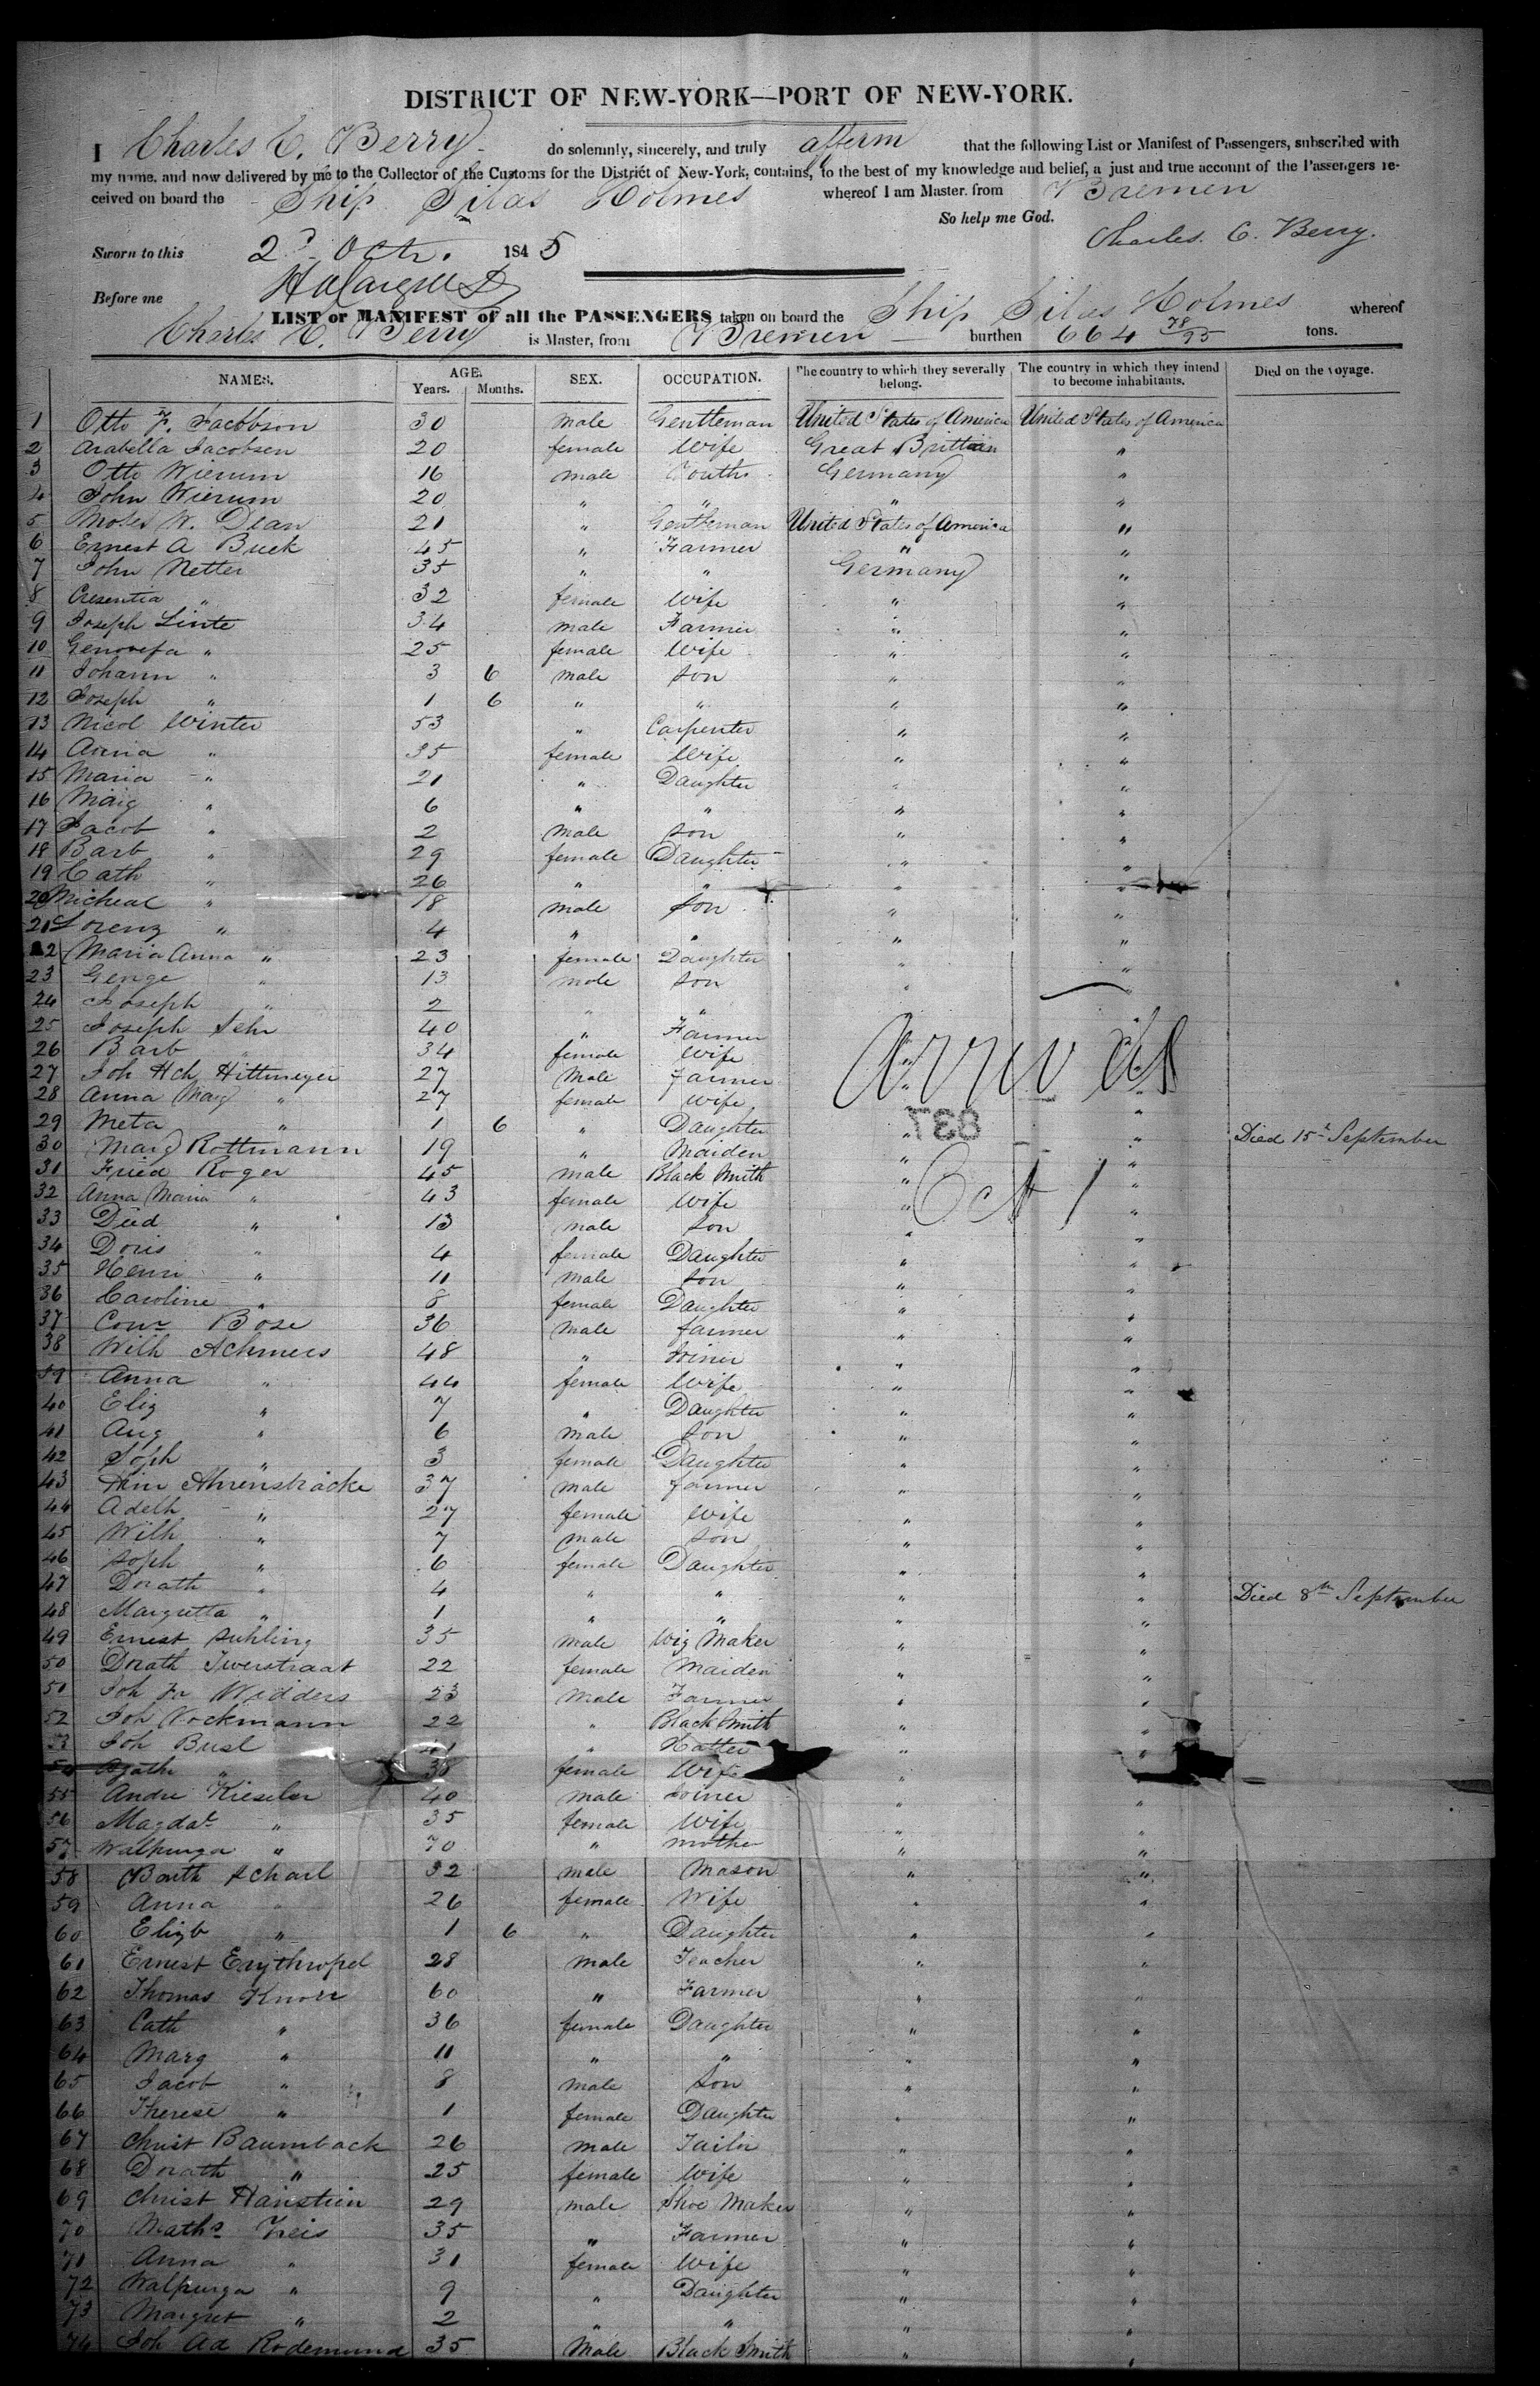 DISTRICT OF NEW-YORK—PORT OF NEW-YORK.
I Charles C. Berry do solemnly, sincerely, and truly affirm that the following List or Manifest of Passengers, subscribed with
my name, and now delivered by me to the Collector of the Customs for the District of New-York, contains, to the best of my knowledge and belief, a just and true account of the Passengers re-
ceived on board the Ship Silas Holmes whereof I am Master, from Bremen
So help me God.
Charles C. Berry.
Sworn to this 2d Oct. 1845
Before me
LIST or MANIFEST of all the PASSENGERS taken on board the Ship Silas Holmes whereof
Charles C. Berry is Master, from Bremen burthen 664 78/95 tons.
NAMES. AGE. Years. Months. SEX. OCCUPATION. The country to which they severally belong. The country in which they intend to become inhabitants. Died on the voyage.
1 Otto F. Jacobson 30 male Gentleman United States of America United States of America
2 Arabella Jacobsen 20 female Wife Great Brittain "
3 Otto Wierum 16 male Youth Germany "
4 John Wierum 20 " " " "
5 Moses W. Dean 21 " Gentleman United States of America "
6 Ernest A Buck 45 " Farmer " "
7 John Netter 35 " " Germany "
8 Cresentia " 32 female Wife " "
9 Joseph Linte 34 male Farmer " "
10 Genovefa " 25 female Wife " "
11 Johann " 3 6 male Son " "
12 Joseph " 1 6 " " " "
13 Nicol Winter 53 " Carpenter " "
14 Anna " 35 female Wife " "
15 Maria " 21 " Daughter " "
16 Marg " 6 " " " "
17 Jacob " 2 male Son " "
18 Barb " 29 female Daughter " "
19 Cath " 26 " " " "
20 Micheal " 18 male Son " "
21 Lorenz " 4 " " " "
22 Maria Anna " 23 female Daughter " "
23 George " 13 male Son " "
24 Joseph " 2 " " " "
25 Joseph Sehr 40 " Farmer
26 Barb " 34 female Wife
Arrived
27 Joh Hch Hittmeyer 27 Male Farmer "
28 Anna Marg " 27 female Wife
29 Meta " 1 6 " Daughter " "
837
30 Marg Rottmann 19 " Maiden " " Died 15th September
31 Fried Roger 45 male Black Smith " "
Oct 1
32 Anna Maria " 43 female Wife " "
33 Died " 13 male Son " "
34 Doris " 4 female Daughter " "
35 Henri " 11 male Son " "
36 Caroline " 8 female Daughter " "
37 Conr Bose 36 male farmer " "
38 Wilh Achmers 48 " Joiner " "
39 Anna " 44 female Wife " "
40 Eliz " 7 " Daughter " "
41 Aug " 6 male Son " "
42 Soph " 3 female Daughter " "
43 Ahrenstracke 37 male farmer " "
44 Adelh " 27 female Wife " "
45 Wilh " 7 male Son " "
46 Soph " 6 female Daughter " "
47 Dorath " 4 " " " " Died 8th September
48 Margretta " 1 " " " "
49 Ernest Suhling 35 male Wig Maker " "
50 Dorath Twerstraat 22 female Maiden " "
51 Joh Widders 23 Male Farmer " "
52 Joh Vockmann 22 " Black Smith " "
53 Joh Busl 41 " Hatter " "
54 Agath " 38 female Wife " "
55 Andre Kieseler 40 male Joiner " "
56 Magdal " 35 female Wife " "
57 Walpurga " 70 " mother " "
58 Barth Scharl 32 male Mason " "
59 Anna " 26 female Wife " "
60 Elizb " 1 6 " Daughter " "
61 Ernest Erythropel 28 male Teacher " "
62 Thomas Knorr 60 " Farmer " "
63 Cath " 36 female Daughter " "
64 Marg " 11 " " " "
65 Jacob " 8 male Son " "
66 Therese " 1 female Daughter " "
67 Christ Baumback 26 male Tailor " "
68 Dorath " 25 female Wife " "
69 Christ Hanstein 29 male Shoe Maker " "
70 Maths Treis 35 " Farmer " "
71 Anna " 31 female Wife " "
72 Walpurga " 9 " Daughter " "
73 Margret " 2 " " " "
74 Joh Ad Rodemund 35 Male Black Smith " "